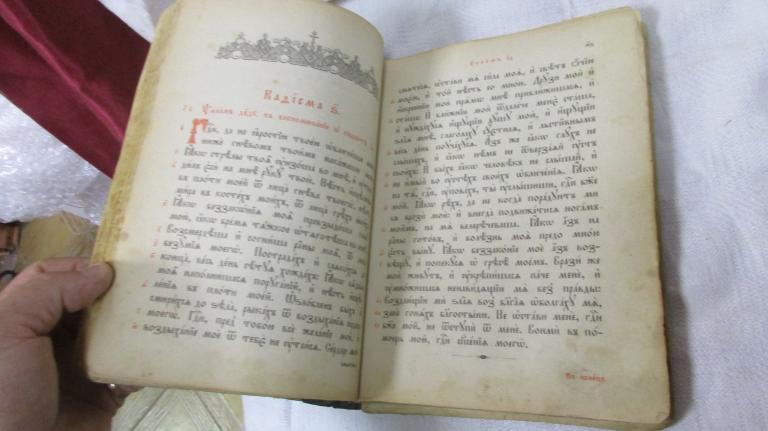 Каѳісма
Гдⷭ҇и, да не ꙗ҆́ростїю твое́ю ѡ҆бличи́ши
нижѐ гнѣ́вомъ твои́мъ нака́жеши
Ꙗ҆́кѡ стрѣ́лы твоѧ̑ ᲂу҆нзо́ша во мнѣ̀, и҆ ᲂу҆твер
ди́лъ є҆сѝ на мнѣ̀ рꙋ́кꙋ твою̀. Нѣ́сть и҆сцѣ
въ пло́ти мое́й ѿ лица̀ гнѣ́ва твоегѡ̀,
ми́ра въ косте́хъ мои́хъ, ѿ лица̀ грѣ̑хъ
Ꙗ҆́кѡ беззакѡ́нїѧ моѧ̑ превзыдо́ша
мою̀, ꙗ҆́кѡ бре́мѧ тѧ́жкое ѡ҆тѧготѣ́ша на
Возсмердѣ́ша и҆ согни́ша ра̑ны моѧ̑, ѿ
безꙋ́мїѧ моегѡ̀. Пострада́хъ и҆ слѧко́хсѧ
конца̀, ве́сь де́нь сѣ́тꙋѧ хожда́хъ.
моѧ̑ напо́лнишасѧ порꙋга́нїй, и҆ нѣ́сть и҆сцѣ
ле́нїѧ въ пло́ти мое́й. Ѡ҆ѕло́бленъ бы́хъ и҆
смири́хсѧ до ѕѣла̀, рыка́хъ ѿ воздыха́нїѧ
моегѡ̀. Гдⷭ҇и, пред̾ тобо́ю всѐ жела́нїе моѐ, и҆
воздыха́нїе моѐ ѿ тебє̀ не ᲂу҆таи́сѧ. Се́рдце моѐ
смѧте́сѧ, ѡ҆ста́ви мѧ̀ си́ла моѧ̀, и҆ свѣ́тъ ѻ҆́чїю
мое́ю, и҆ то́й нѣ́сть со мно́ю. Дрꙋ́зи моѝ и҆
и҆́скреннїи моѝ прѧ́мѡ мнѣ̀ прибли́жишасѧ, и҆
ста́ша: И҆ бли́жнїи моѝ ѿдале́че менє̀ ста́ша,
и҆ нꙋжда́хꙋсѧ и҆́щꙋщїи дꙋ́шꙋ мою̀, и҆ и҆́щꙋщїи
ѕла̑ѧ мнѣ̀, глаго́лахꙋ сꙋ́єтнаѧ, и҆ льсти̑внымъ
ве́сь де́нь поꙋча́хꙋсѧ. А҆́зъ же ꙗ҆́кѡ глꙋ́хъ не
слы́шахъ, и҆ ꙗ҆́кѡ нѣ́мъ не ѿверза́ѧй ᲂу҆́стъ
свои́хъ: И҆ бы́хъ ꙗ҆́кѡ человѣ́къ не слы́шай, и҆
не и҆мы́й во ᲂу҆стѣ́хъ свои́хъ ѡ҆бличе́нїѧ. Ꙗ҆́кѡ
на тѧ̀, гдⷭ҇и, ᲂу҆пова́хъ, ты̀ ᲂу҆слы́шиши, гдⷭ҇и бж҃е
мо́й. Ꙗ҆́кѡ рѣ́хъ, да не когда̀ пора́дꙋютъ ми
сѧ вразѝ моѝ: и҆ внегда̀ подвижа́тисѧ нога́мъ
мои́мъ, на мѧ̀ велерѣ́чеваша. Ꙗ҆́кѡ а҆́зъ на
ра̑ны гото́въ, и҆ болѣ́знь моѧ̀ предо мно́ю
є҆́сть вы́нꙋ. Ꙗ҆́кѡ беззако́нїе моѐ а҆́зъ воз
вѣщꙋ̀ и҆ попекꙋ́сѧ ѡ҆ грѣсѣ̀ мое́мъ. Вразѝ же
моѝ живꙋ́тъ, и҆ ᲂу҆крѣпи́шасѧ па́че менє̀, и҆
ᲂу҆мно́жишасѧ ненави́дѧщїи мѧ̀ без̾ пра́вды:
воздаю́щїи мѝ ѕла̑ѧ воз̾ бл҃га̑ѧ ѡ҆болга́хꙋ мѧ̀,
занѐ гонѧ́хъ бл҃госты́ню. Не ѡ҆ста́ви менє̀, гдⷭ҇и
бж҃е мо́й, не ѿстꙋпѝ ѿ менє̀. Вонмѝ въ по́
мощь мою̀, гдⷭ҇и спⷭ҇нїѧ моегѡ̀.
Въ коне́цъ